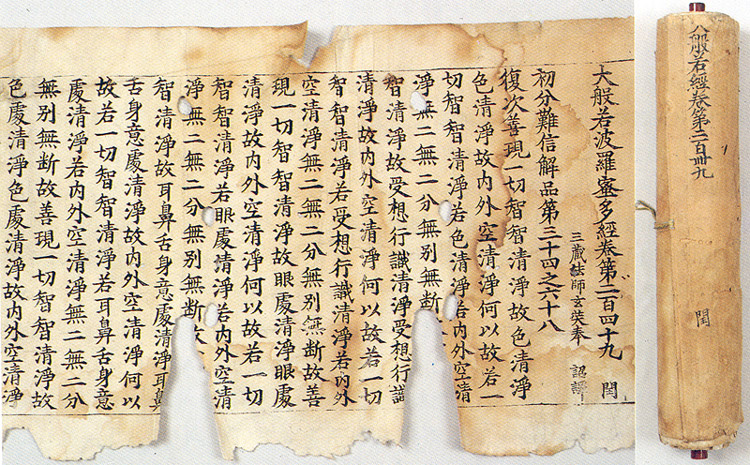 大般若波羅蜜多經卷第二百四十九 閏
三藏法師玄奘奉 詔譯
初分難信解品第三十四之六十八
復次善現一切智智清淨故色清淨
色清淨故內外空清淨何以故若一
切智智清淨若色清淨若內外空清
淨無二無二分無別無斷
智清淨故受想行識清淨受想行識
清淨故內外空清淨何以故若一切
智智清淨若受想行識清淨若內外
空清淨無二無二分無別無斷故善
現一切智智清淨故眼處清淨眼處
清淨故內外空清淨何以故若一切
智智清淨若眼處清淨若內外空清
淨無二無二分無別無斷故
智清淨故耳鼻舌身意處清淨耳鼻
舌身意處清淨故內外空清淨何以
故若一切智智清淨若耳鼻舌身意
處清淨若內外空清淨無二無二分
無別無斷故善現一切智智清淨故
色處清淨色處清淨故內外空清淨
般若經卷第二百卌九
閏